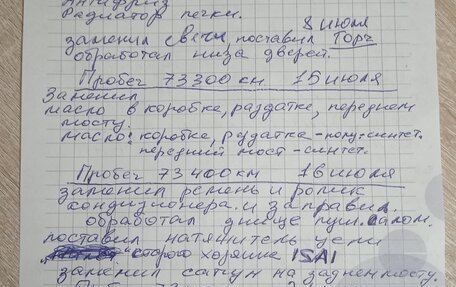 Антифриз
Радиатор печки.
8 июля
заменил свечи, поставил Торч
обработал низа дверей.
Пробег 73300 км 15 июля
Заменил
масло в коробке, раздатке, переднем
мосту.
масло: коробке, раздатка - полу-синтет.
передний мост - синтет.
Пробег 73400 км 16 июля
заменил ремень и ролик
кондизионера. и заправил.
обработал днище пуш. салом.
поставил натяжитель цепи
старого хозяина ISAI
заменил сапун на заднем мосту.